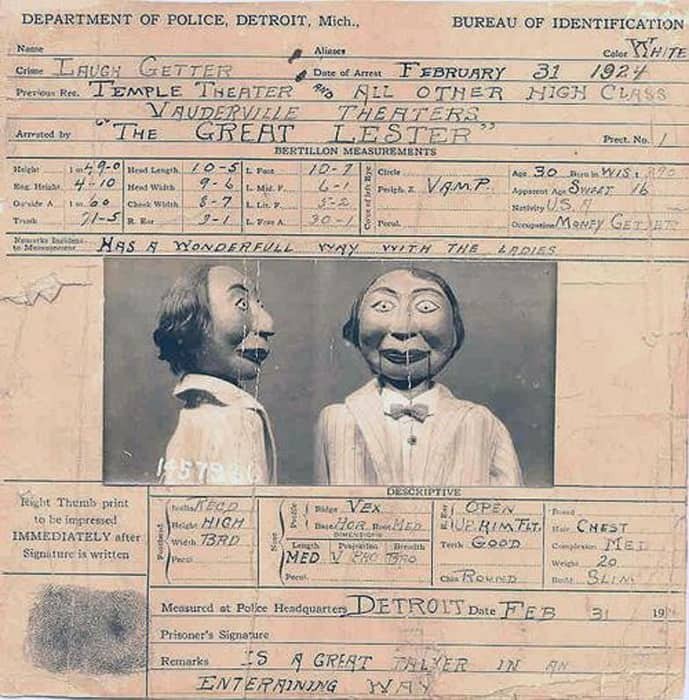 DEPARTMENT OF POLICE, DETROIT, Mich., BUREAU OF IDENTIFICATION
Name Aliases Color WHITE
Crime LAUGH GETTER Date of Arrest FEBRUARY 31 1924
Previous Rec. TEMPLE THEATER AND ALL OTHER HIGH CLASS
VAUDERVILLE THEATERS
Arrested by "THE GREAT LESTER" Prect. No. 1
BERTILLON MEASUREMENTS
Height 1 m 49-0 Head Length 10-5 L. Foot 10-7 Circle Age 30 Born in WIS
Eng. Height 4-10 Head Width 9-6 L. Mid. F. 6-1 Periph. Z. VAMP. Apparent Age SWEET 16
Outside A. 1 m 60 Cheek Width 8-7 L. Lit. F. 5-2 Nativity U.S.A
Trunk 71-5 R. Ear 9-1 L. Fore A. 30-1 Pecul. Occupation MONEY GETTER
Color of left Eye
Remarks Incident to Measurement HAS A WONDERFULL WAY WITH THE LADIES
DESCRIPTIVE
Right Thumb print
to be impressed
IMMEDIATELY after
Signature is written
Forehead
Inclin. RECD
Height HIGH
Width BRD
Pecul.
Nose
Profile
Ridge VEX
Base HOR Root MED
DIMENSIONS
Length Projection Breadth
MED V PRO BRO
Pecul.
R. Ear
OPEN
UP. RIM FLT.
Teeth GOOD
Chin ROUND
Beard
Hair CHEST
Complexion MED
Weight 20
Build SLIM
Measured at Police Headquarters DETROIT Date FEB 31 19
Prisoner's Signature
Remarks IS A GREAT TALKER IN AN
ENTERAINING WAY